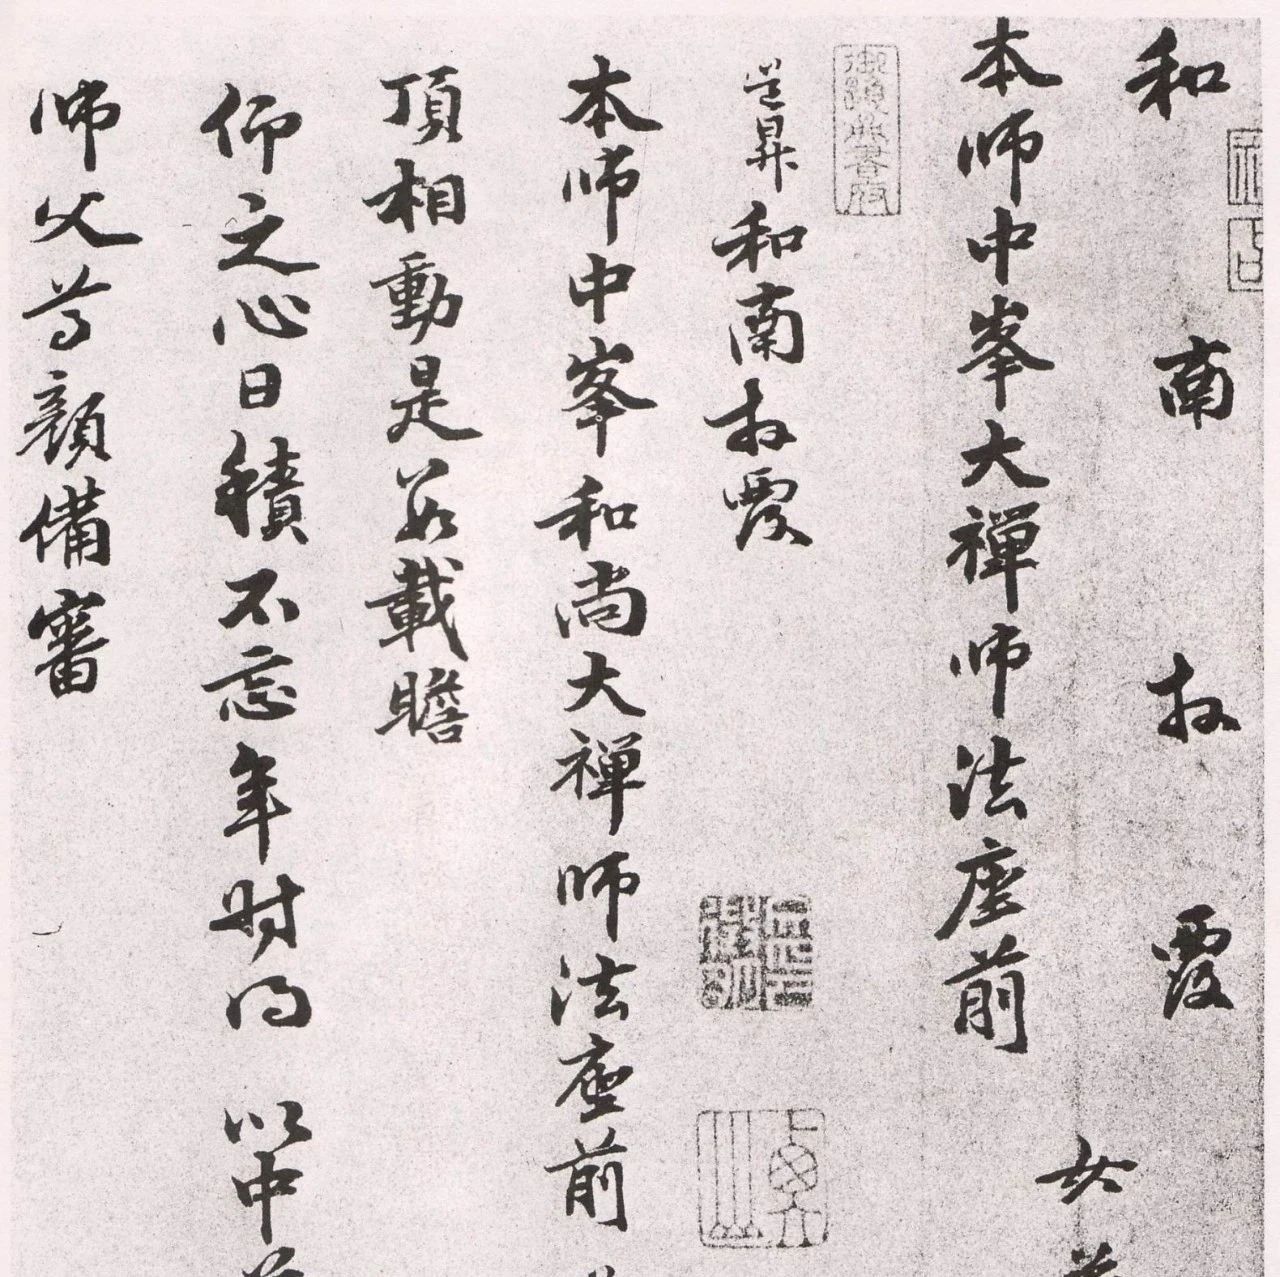 和南拜覆
女
本师中峯大禪师法座前
道昇和南拜覆
本师中峯和尚大禪师法座前
頂相動是數載瞻
仰之心日積不忘年时得以中
师父尊顏備審